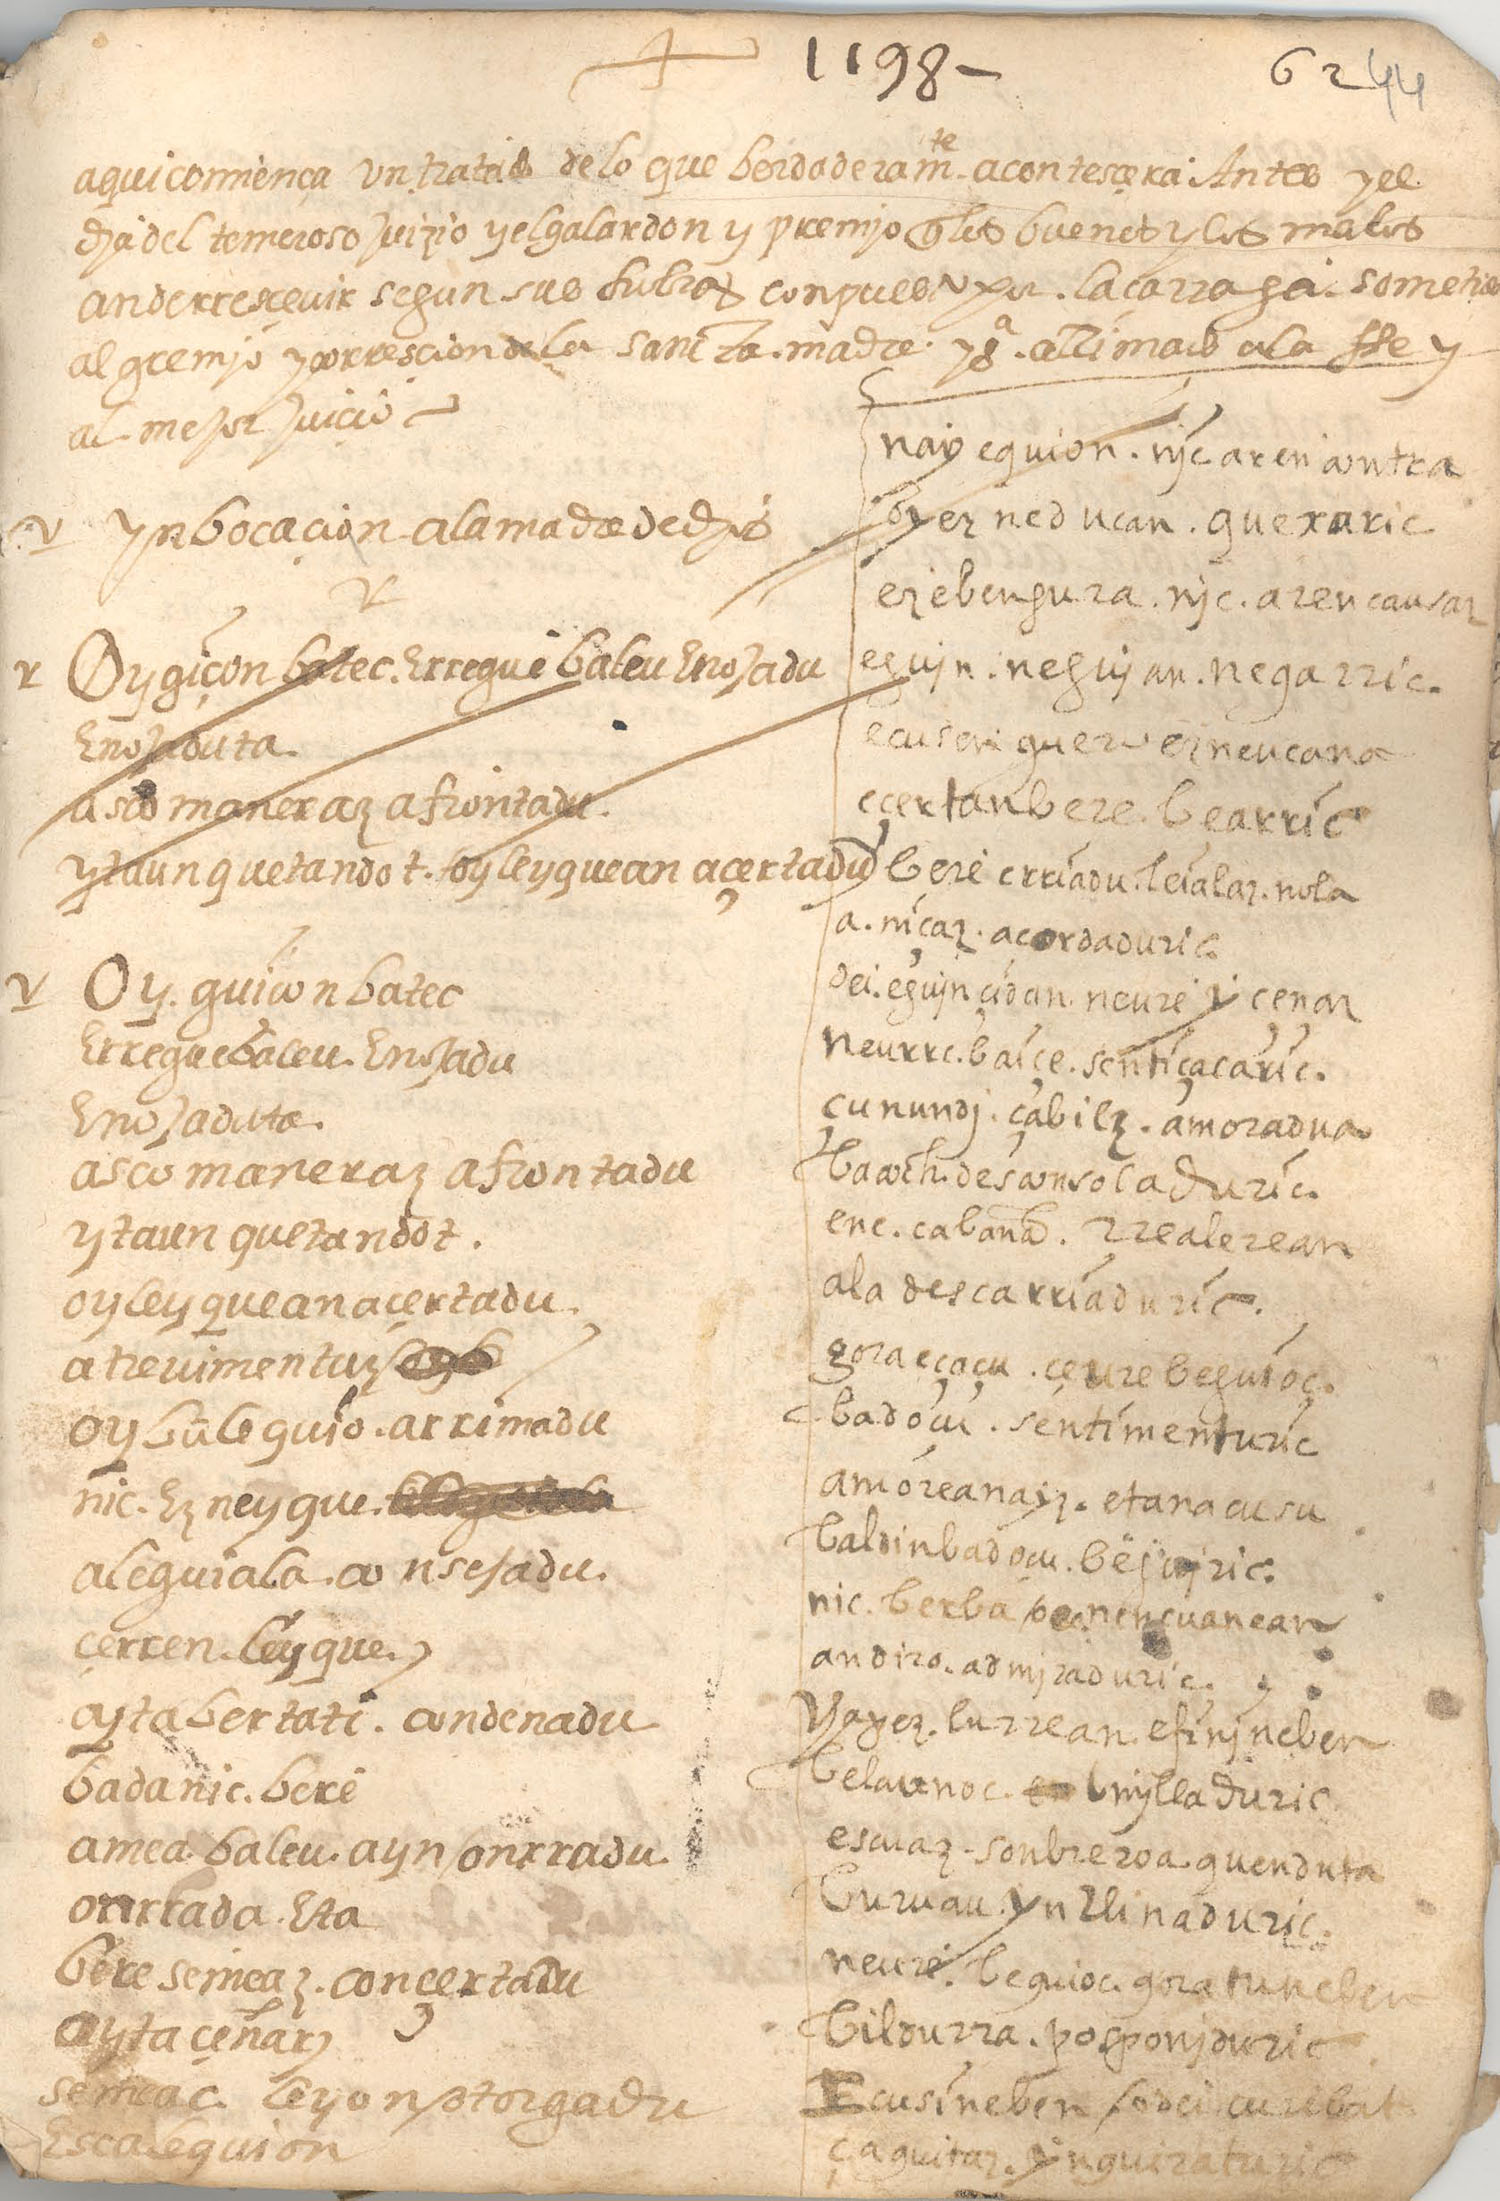 1198
62 44
aqui comiença un tratado de lo que berdaderamte acontesçera Antes y el
dya del temeroso Juizio y el galardon y premjo q los buenos y los malos
an de rresçevir segun sus hubras conpuesta por laçarraga sometida
al gremjo y correscion de la sancta madre yga allimado a la ffe y
al mejor Juiçio
ynbocaçion a la madre de dios
Oy giçon batec. Erregue baleu Enojadu
Enojaduta.
asco maneraz afrontadu.
ytaunquetandot. oy leyquean açertadu
Oy. guiçon batec
Erregue baleu. Enojadu
Enojaduta.
asco maneraz afrontadu
ytaun quetandot.
oy leyquean açertadu.
atreuimentuz
oy bulleguio. arrimadu
nic. Ez neyque.
aleguiala. consejadu.
çerren. leyque.
ayta bertati. condenadu
badanic. bere
amea baleu. ayn onrradu.
onrrada. Eta
bere semeaz. conçertadu
ayta çenaz
semeac leyon otorgadu
Escaleguion
naiz eguion. njc aren contra
oy ez neducan. quexaric
ez ebengura. njc. aren causaz
eguin. neguian. negarric.
ecusen guero ez neucana
eçertan bere. bearric
bere crriadu. leialaz. nola
a. niçaz. acordaduric.
dei. eguin çidan. neure yçenaz
neurrc. baiçe. sentiçaçaric.
çu nundj. çabilz. amoradua
baoch. desconsoladuric.
enc. cabana. rrealerean
ala descarriaduric.
gora eçaçu. çeure beguioc.
badoçu. sentimenturic
amoreanaiz. etanacusu
baldin badoçu. bëjuric.
nic. berba oenençuanean
andiro. admjraduric.
Yayez. lurrean. efinj neben
belaunoc. vmylladuric
escuaz. sonbreroa. quenduta
buruau. ynclinaduric.
neure. beguioc. gora tuneben
bildurra. posponjduric
Ecusi neben odei curi bat
çaguitaz. ynguiraturic